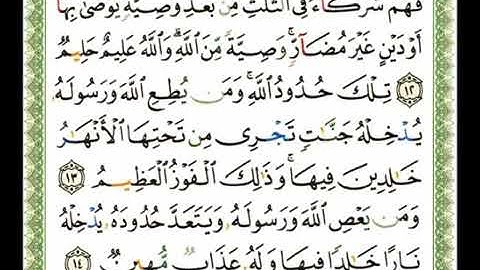 فَهُمْ شُرَكَآءُ فِى ٱلثُّلُثِ مِنۢ بَعْدِ وَصِيَّةٍ يُوصَىٰ بِهَآ
أَوْ دَيْنٍ غَيْرَ مُضَآرٍّ وَصِيَّةً مِّنَ ٱللَّهِ وَٱللَّهُ عَلِيمٌ حَلِيمٌ
١٢ تِلْكَ حُدُودُ ٱللَّهِ وَمَن يُطِعِ ٱللَّهَ وَرَسُولَهُۥ
يُدْخِلْهُ جَنَّٰتٍ تَجْرِى مِن تَحْتِهَا ٱلْأَنْهَٰرُ
خَٰلِدِينَ فِيهَا وَذَٰلِكَ ٱلْفَوْزُ ٱلْعَظِيمُ ١٣
وَمَن يَعْصِ ٱللَّهَ وَرَسُولَهُۥ وَيَتَعَدَّ حُدُودَهُۥ يُدْخِلْهُ
نَارًا خَٰلِدًا فِيهَا وَلَهُۥ عَذَابٌ مُّهِينٌ ١٤